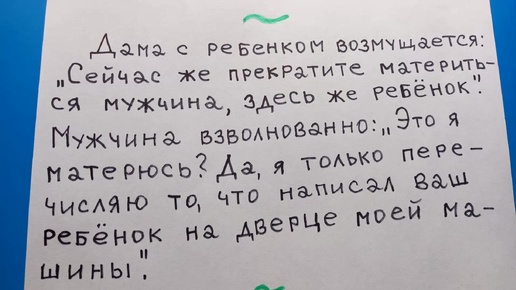 Дама с ребенком возмущается:
„Сейчас же прекратите материть-
ся мужчина, здесь же ребёнок".
Мужчина взволнованно: „Это я
матерюсь? Да, я только пере-
числяю то, что написал ваш
ребёнок на дверце моей ма-
шины".